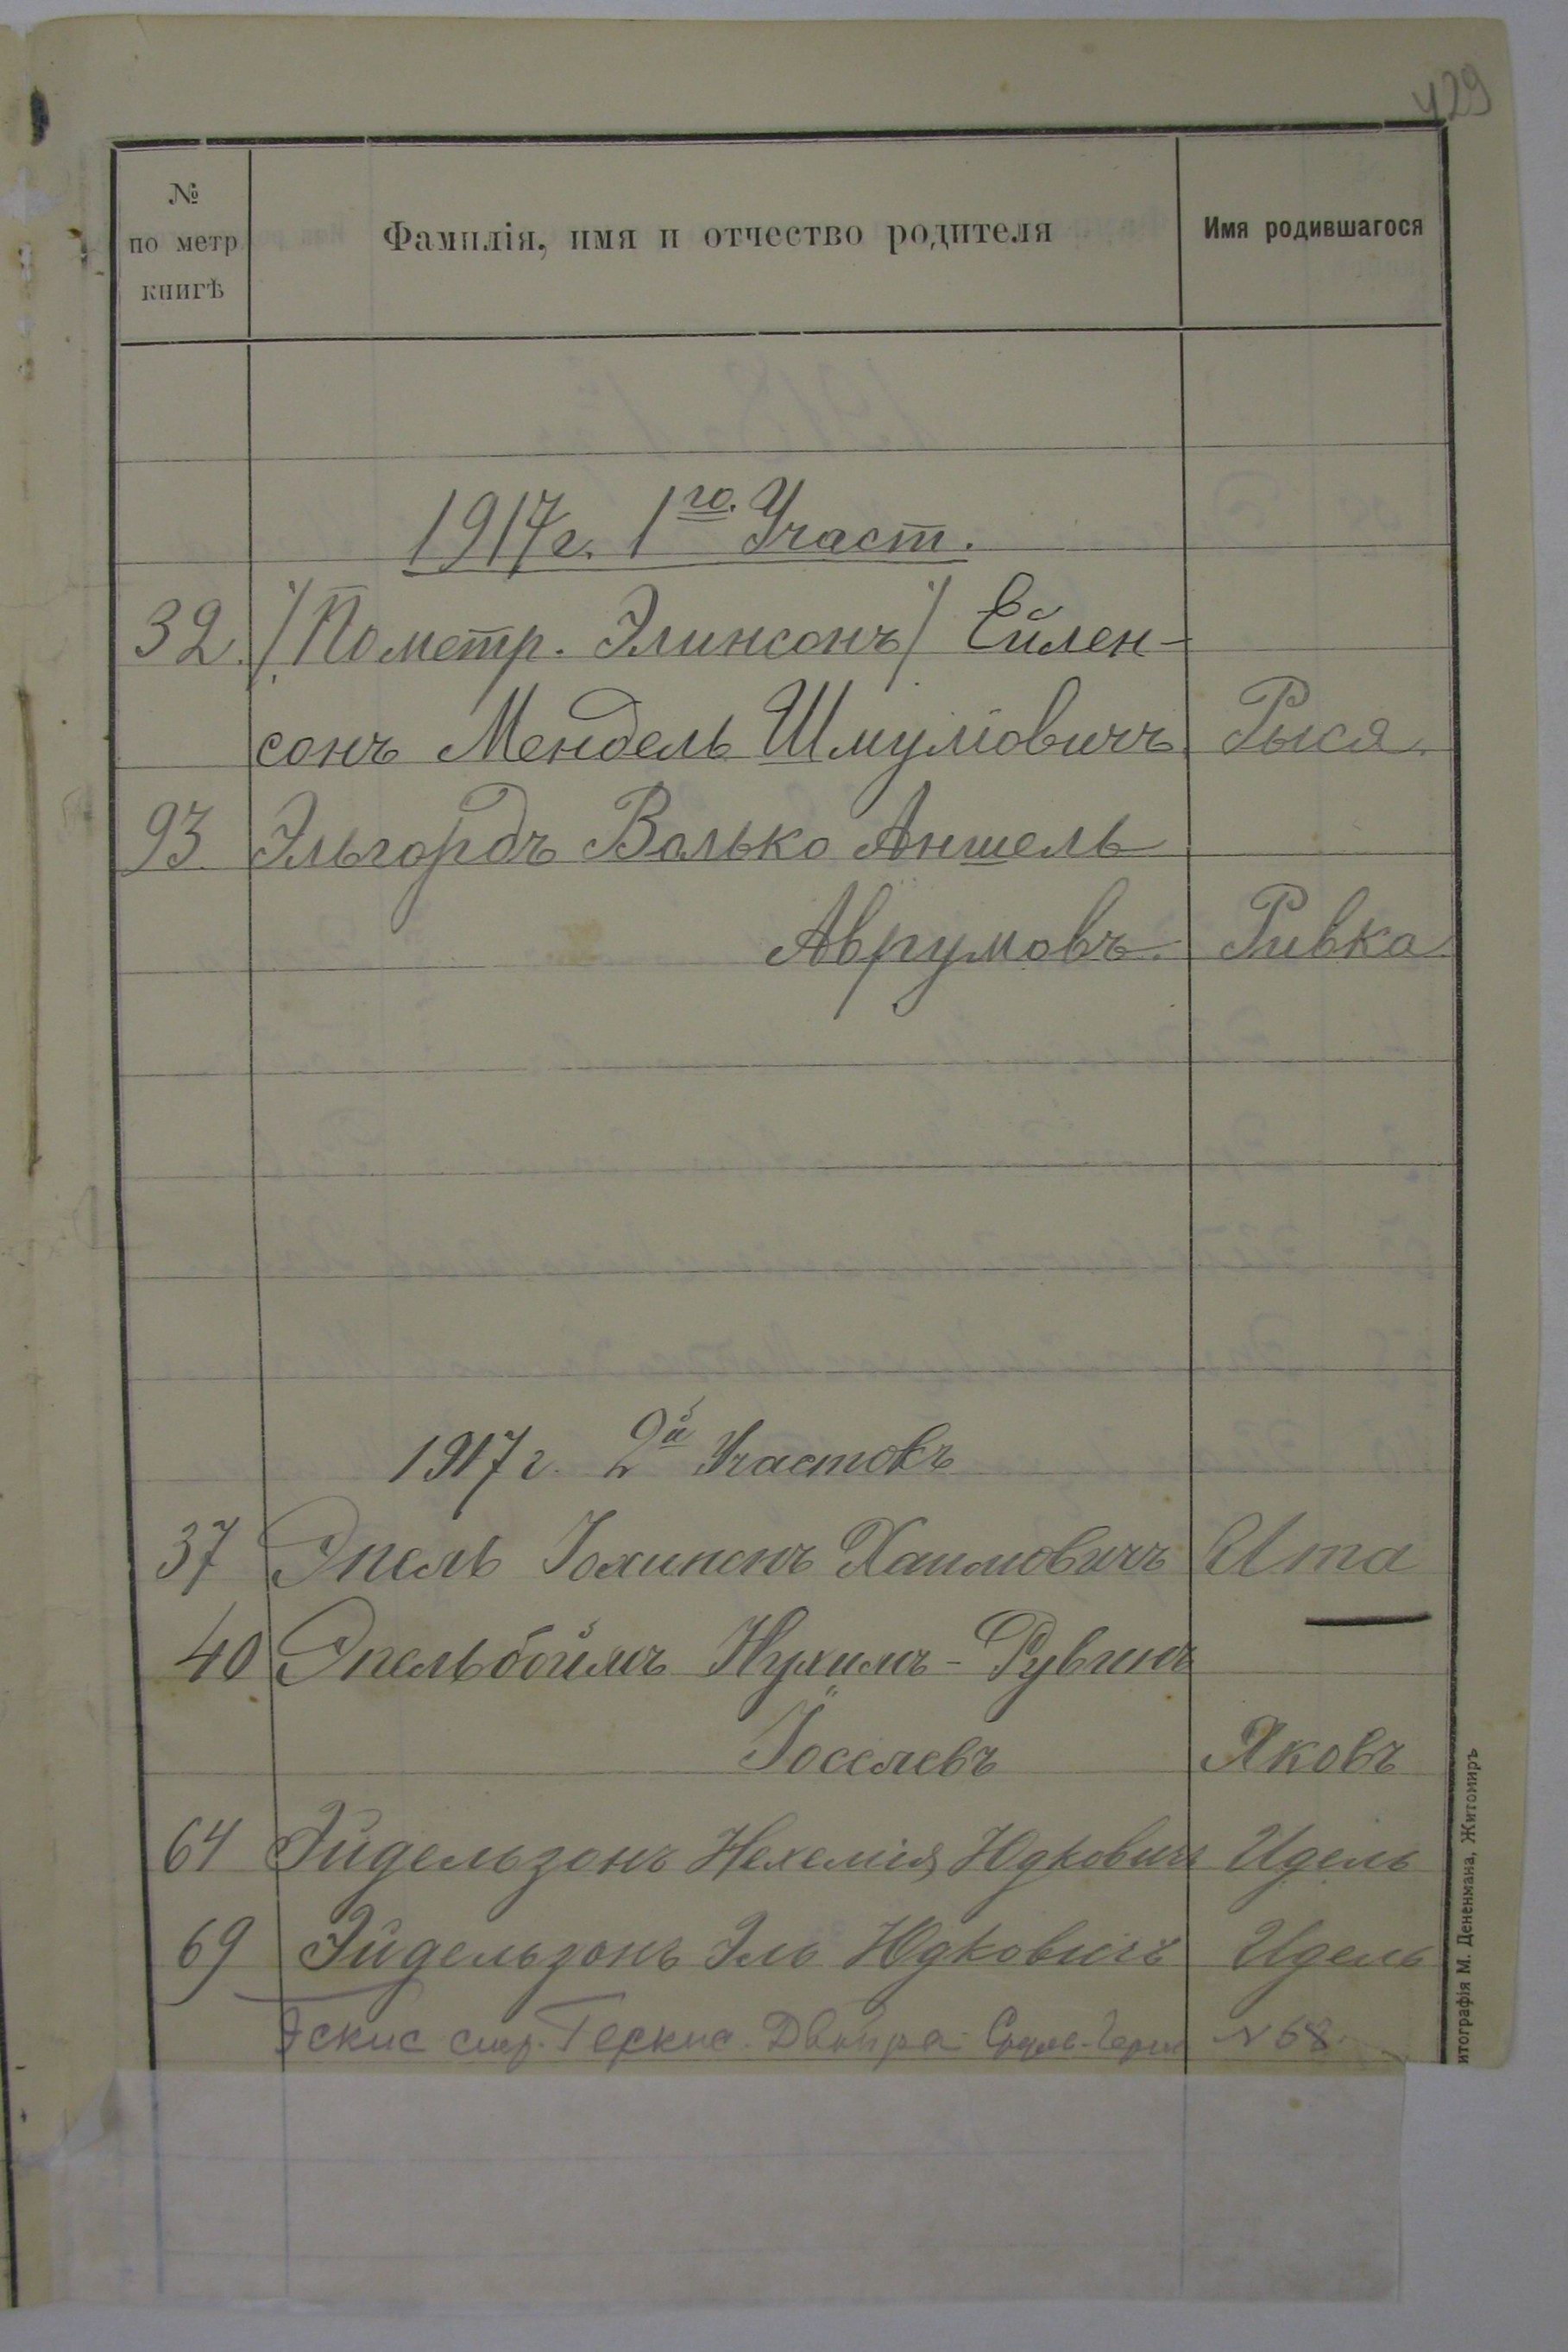 429
№
по метр
книгѣ
Фамилія, имя и отчество родителя
Имя родившагося
1917 г. 1го. Участ.
32. /По метр. Элинсонъ/ Ейлен-
сонъ Мендель Шмуліовичъ Рыся.
93. Эльгордъ Волько Аншель
Аврумовъ. Ривка
1917 г. 2й Участокъ
37 Эпель Іохинонъ Хаимовичъ Ита
40 Эпельбоймъ Нухимъ-Рувинъ
Іоселевъ Яковъ
64 Эйдельзонъ Нехемія Юдковичъ Идель
69 Эйдельзонъ Эль Юдковичъ Идель
Эскис смр. Геркис. Двойра № 68.
итографія М. Дененмана, Житомиръ